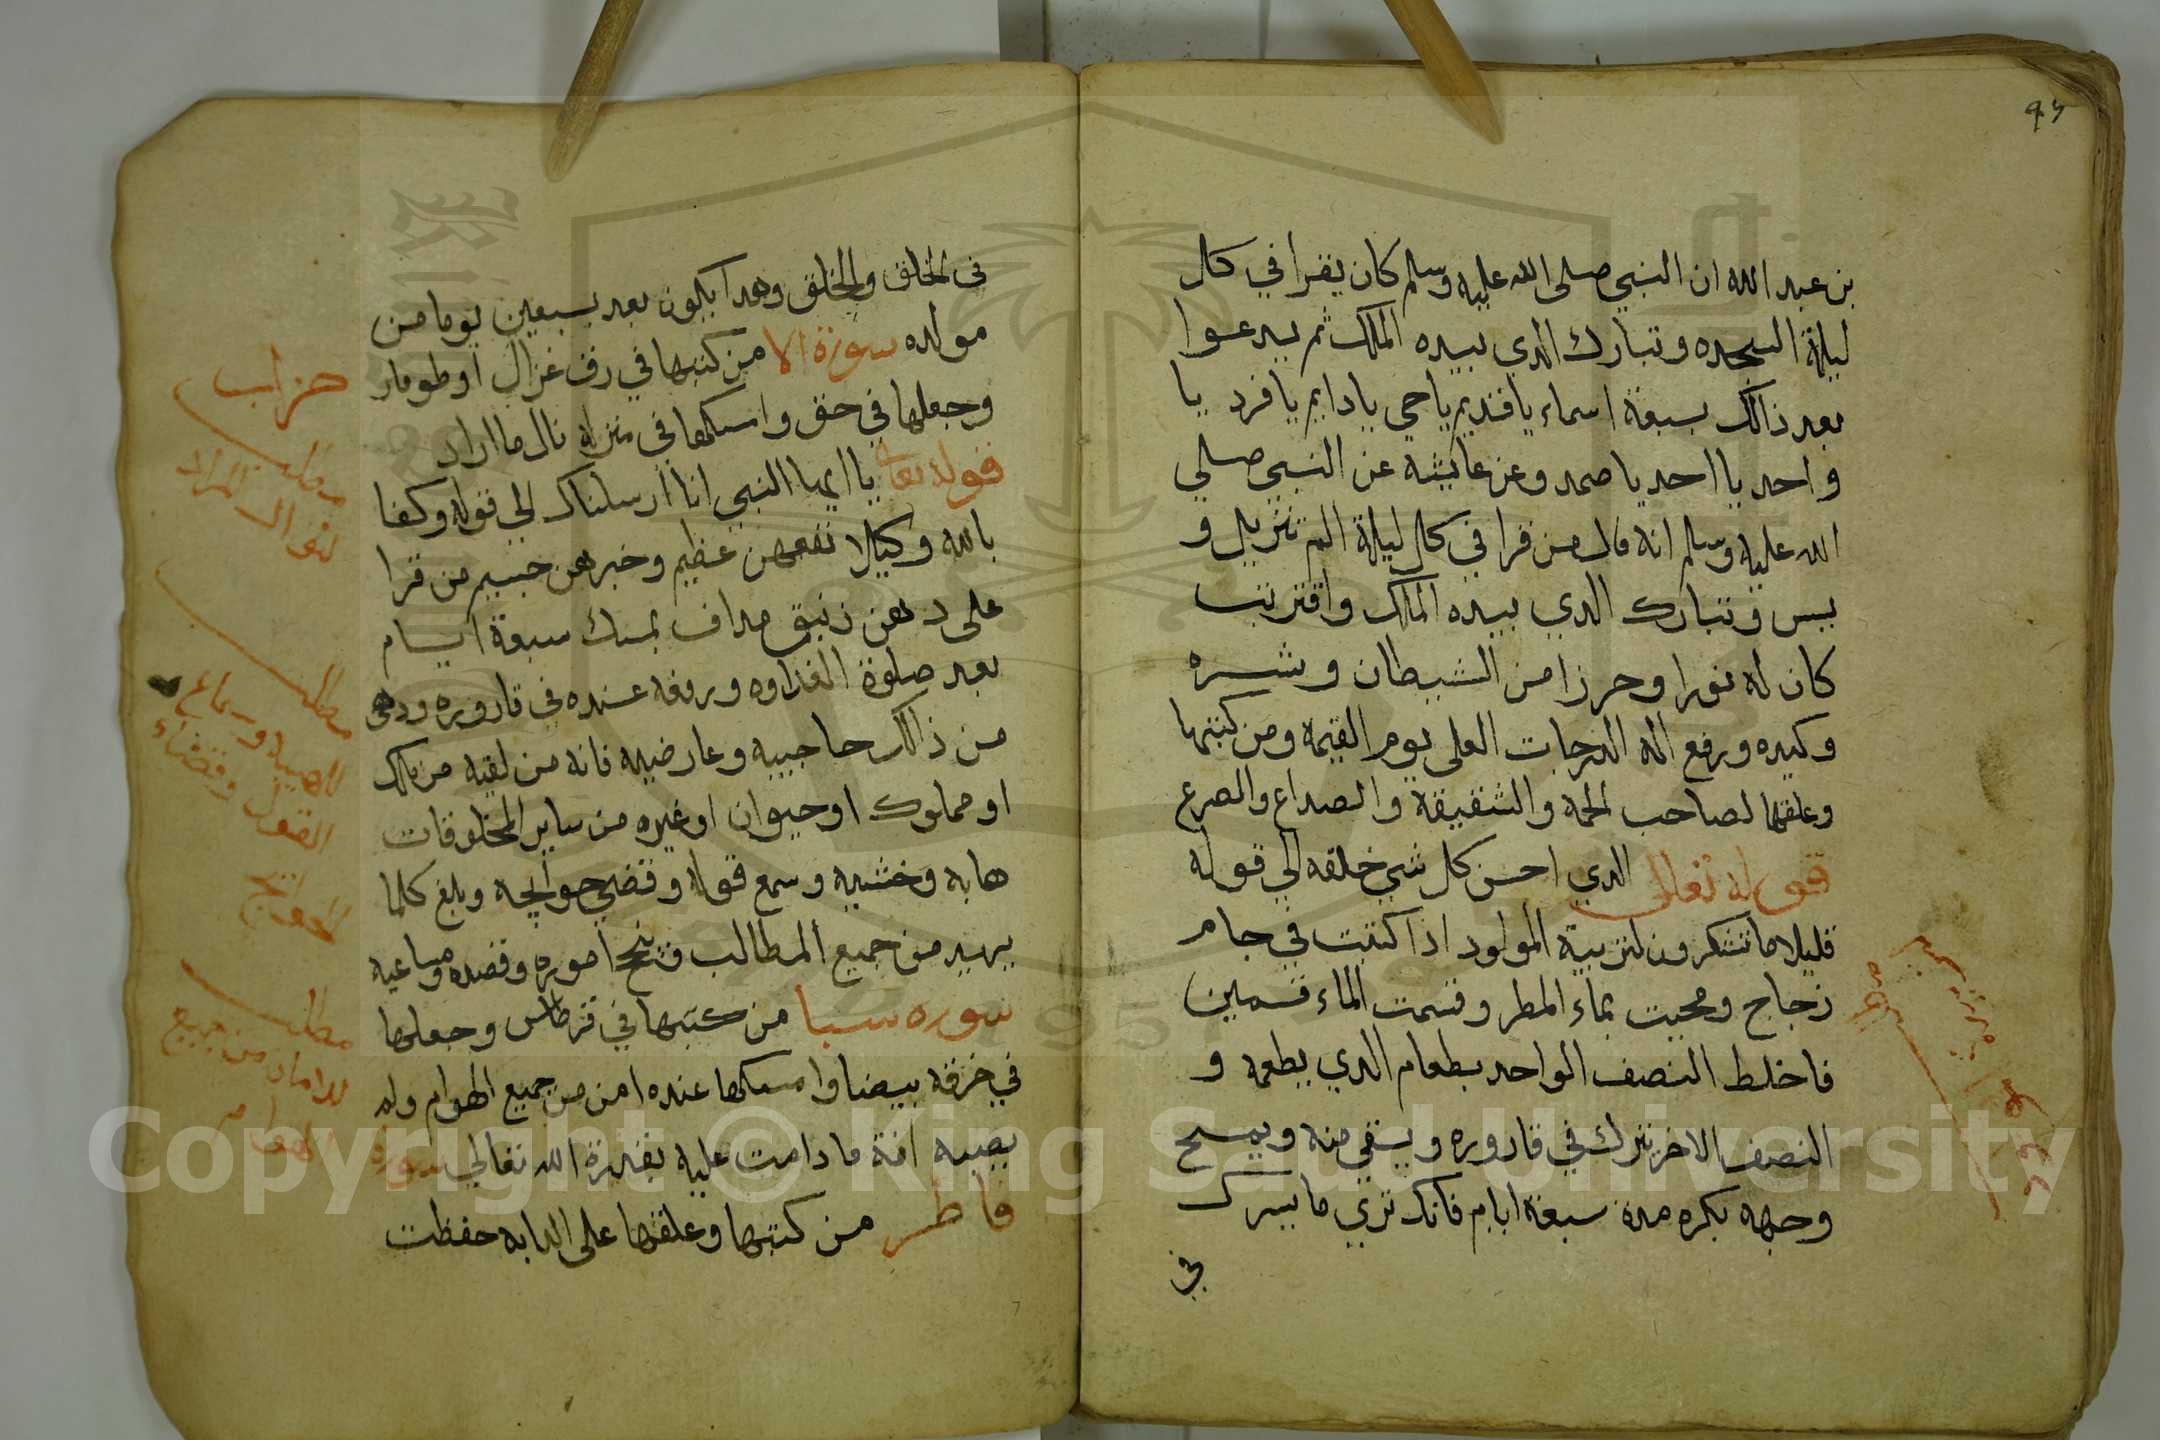 ٩٦
بن عبد الله ان النبي صلى الله عليه وسلم كان يقرا في كل
ليلة السجده وتبارك الدي بيده الملك ثم يدعوا
بعد ذالك بسبعة اسماء يا قديم يا حي يا دايم يا فرد يا
واحد يا احد يا صمد وعن عايشه عن النبي صلي
الله عليه وسلم انه قال من قرا في كل ليلة الم تنزيل و
يس وتبارك الدي بيده الملك واقتربت
كان له نورا وحرزا من الشيطان وشره
وكيده ورفع اله الدرجات العلى يوم القيمة ومن كتبها
وعلقها لصاحب الحمه والشقيقة والصداع والصرع
قوله تعالى الدي احسن كل شي خلقه الي قوله
قليلا ما تشكرون لتربية المولود اذا كتبت في جام
زجاج ومحيت بماء المطر وقسمت الماء قسمين
فاخلط النصف الواحد بطعام الدي يطعمه و
النصف الاخر تترك في قاروره ويسقي منه ويمسح
وجهه بكره مدة سبعة ايام فانك تري ما يسرك
في
في الخلق والخلق وهدا يكون بعد سبعين يوما من
مولده سورة الا من كتبها في رق غزال او طومار
هزاب
وجعلها في حق وامسكها في منزله نال ما اراد
مطلب
لنوال المراد
قوله تعا يا ايها النبي انا ارسلناك الي قوله وكفا
بالله وكيلا نفعهن عظيم وخبرهن جسيم من قرا
على دهن زنبق مداف بمسك سبعة ايام
بعد صلوة الغداوه ورفعه عنده في قاروره ودهن
مطلب
للهيبه وسماع
القول وقضاء
الحوايج
من ذالك حاجبيه وعارضيه فانه من لقيه من ملك
او مملوك او حيوان او غيره من ساير المخلوقات
هابه وخشيه وسمع قوله وقضي حوايجه وبلغ كلما
يريد من جميع المطالب فتنجح اموره وقصده ومساعيه
سوره سبا من كتبها في قرطاس وجعلها
مطلب
للامان من جميع
الهوام
في خرقه بيضا وامسكها عنده امن من جميع الهوام ولم
يصبه افة ما دامت عليه بقدرة الله تعالي سورة
فاطر من كتبها وعلقها على الدابه حفظت